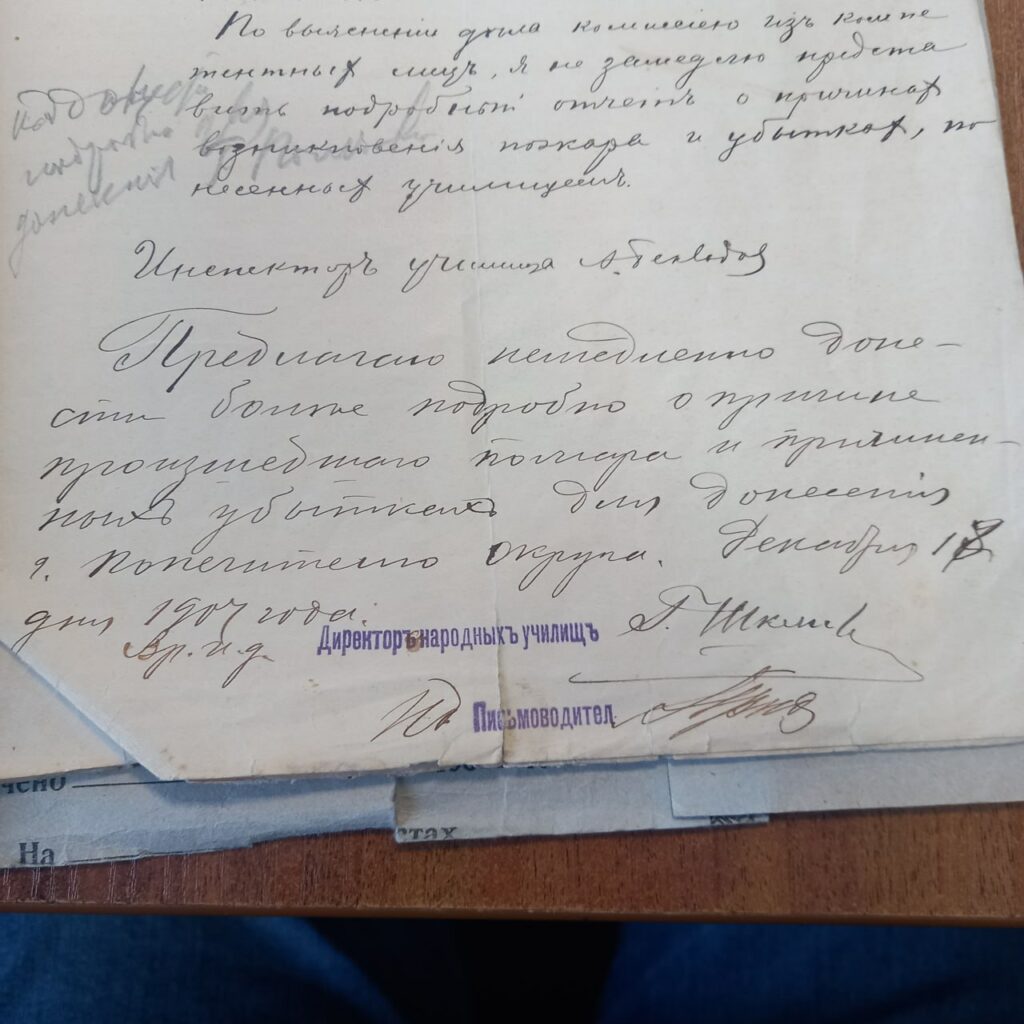 По выясненiи дѣла комиссiею изъ компе
тентныхъ лицъ, я не замедлю предста
вить подробный отчетъ о причинахъ
возникновенiя пожара и убыткахъ, по
несенныхъ училищемъ.
подробно
донесенiя
Инспекторъ училища А.
Предлагаю немедленно доне-
сти болѣе подробно о причине
происшедшаго пожара и причинен-
ныхъ убыткахъ для донесенiя
г. Попечителю Округа. Декабря
дня 1907 года.
Вр. и. д. Директоръ народныхъ училищъ Г.
Письмоводител
чено
На
стах